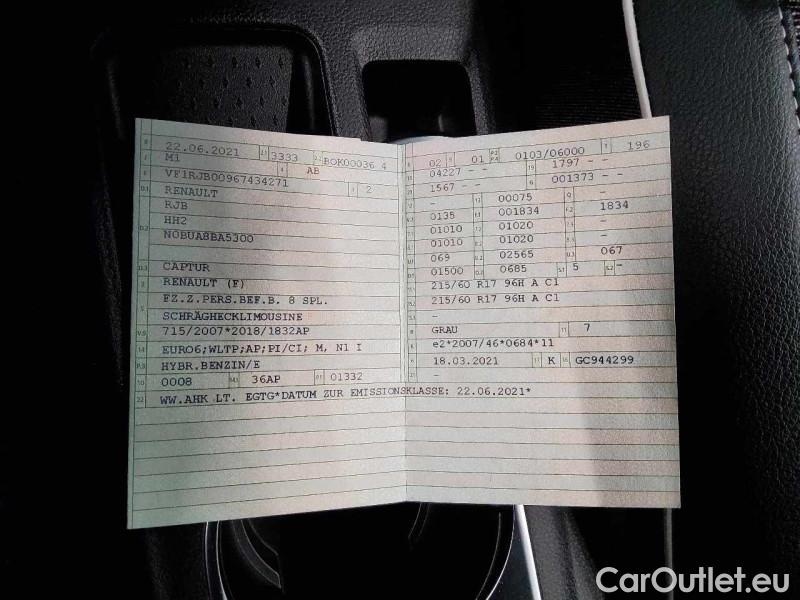 B 22.06.2021 2.1 3333 2.2 BOK00036 4
J M1 4 AB
E VF1RJB00967434271 3 2
D.1 RENAULT
RJB
D.2 HH2
N0BUA8BA5300
D.3 CAPTUR
2 RENAULT (F)
5 FZ.Z.PERS.BEF.B. 8 SPL.
SCHRÄGHECKLIMOUSINE
V.9 715/2007*2018/1832AP
14 EURO6;WLTP;AP;PI/CI; M, N1 I
P.3 HYBR.BENZIN/E
10 0008 14.1 36AP P.1 01332
22 WW.AHK LT. EGTG*DATUM ZUR EMISSIONSKLASSE: 22.06.2021*
02 01 P.2 P.4 0103/06000 T 196
18 04227 - - 19 1797 - -
20 1567 - - G 001373 - -
12 - 13 00075 Q -
0135 F.1 001834 F.2 1834
01010 01020 -
01010 01020 -
069 02565 067
01500 0685 S.1 5 S.2 -
215/60 R17 96H A C1
215/60 R17 96H A C1
-
R GRAU 11 7
K e2*2007/46*0684*11
6 18.03.2021 17 K 16 GC944299
21 -
CarOutlet.eu